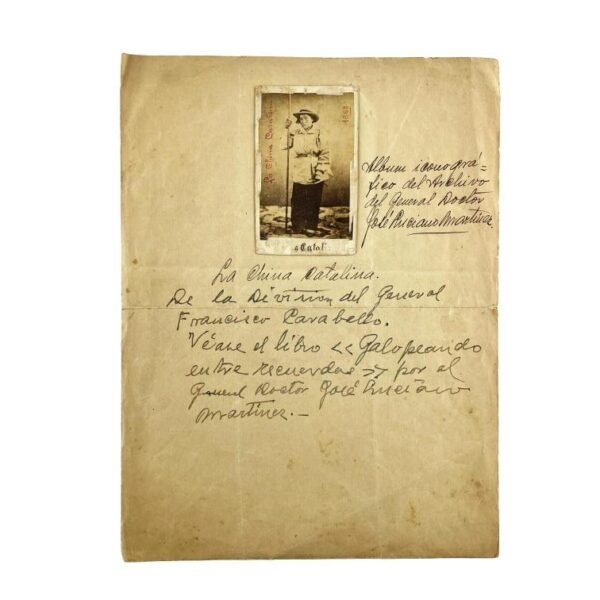 La China Catalina
1868
a Catali
Album iconográ=
fico del Archivo
del General Doctor
José Luciano Martínez
La China Catalina.
De la Division del General
Francisco Caraballo.
Véase el libro << Galopeando
entre recuerdos >> por el
General Doctor José Luciano
Martínez.-